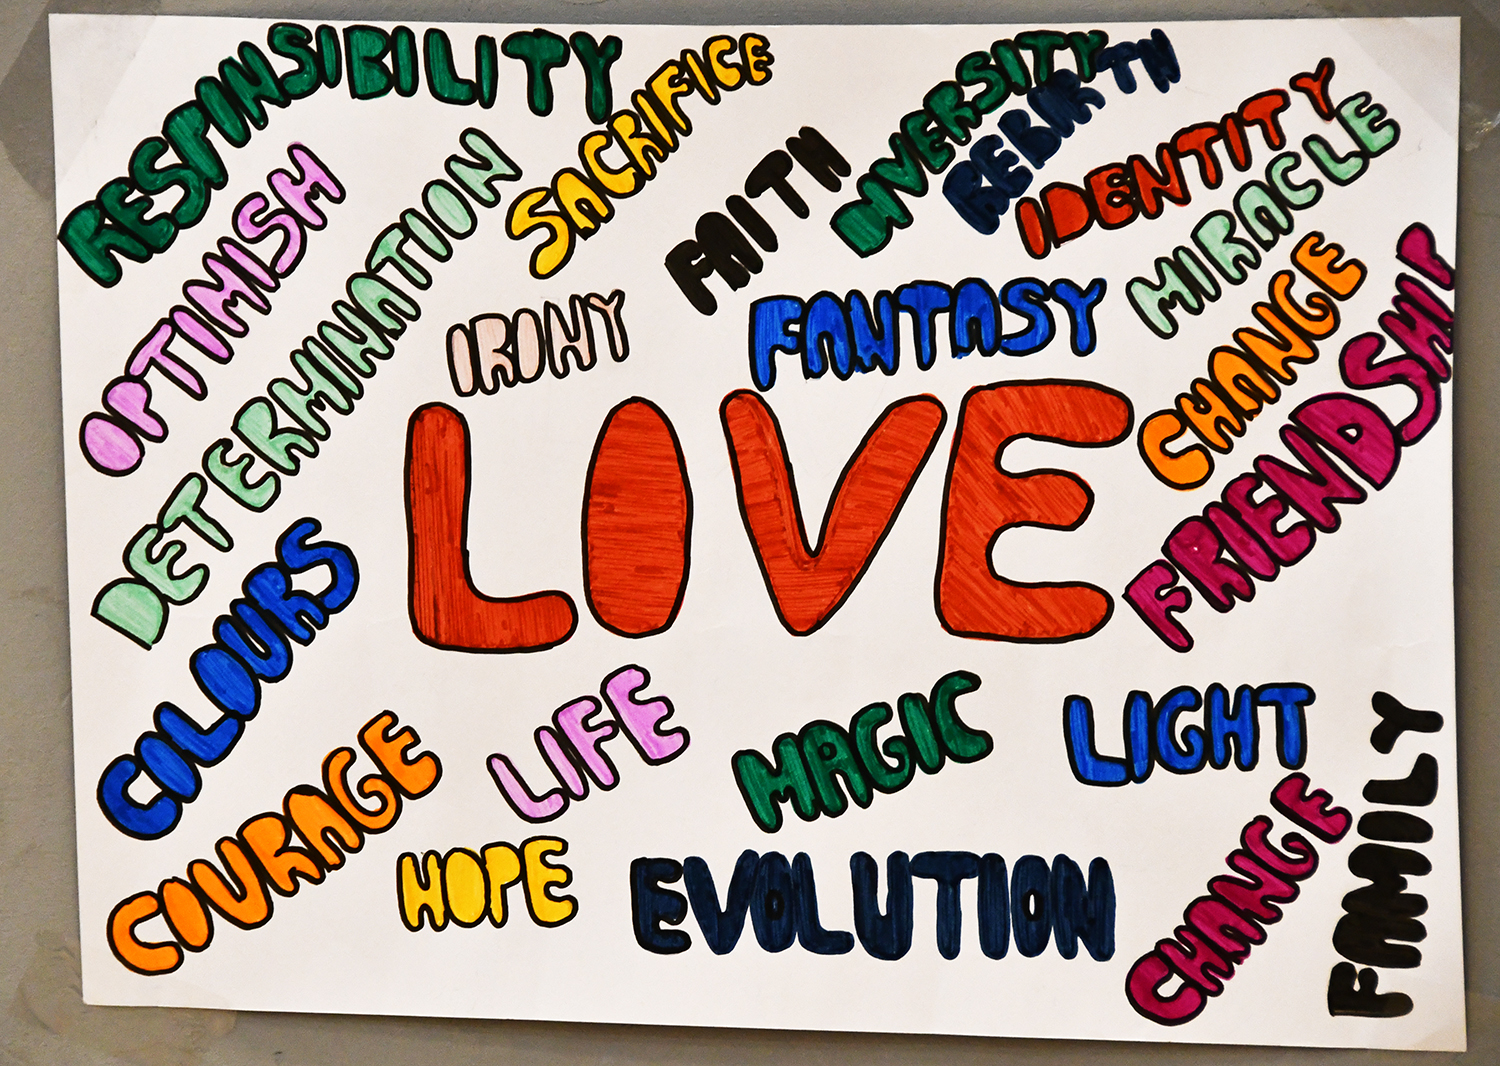 RESPINSIBILITY
SACRIFICE
DIVERSITY
REBIRTH
IDENTITY
MIRACLE
OPTIMISM
DETERMINATION
FAITH
IRONY
FANTASY
CHANGE
FRIENDSHIP
LOVE
COLOURS
COURAGE
LIFE
MAGIC
LIGHT
HOPE
EVOLUTION
CHANGE
FAMILY